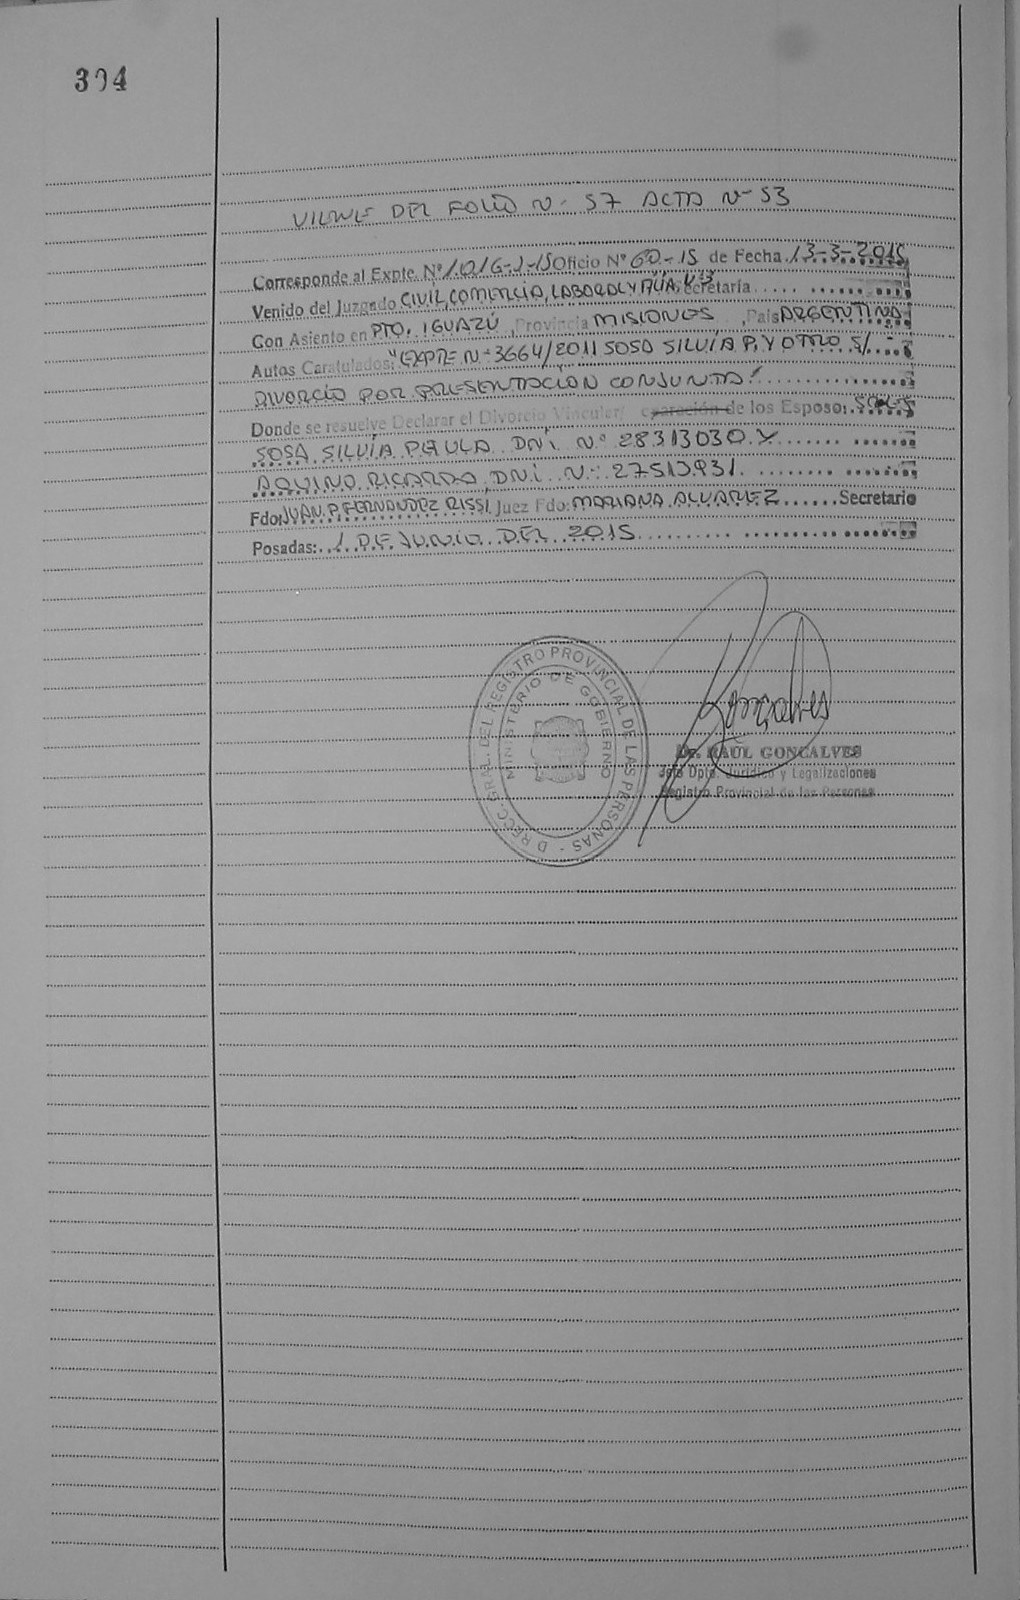 304
VIENE DEL FOLIO N- 57 ACTA N- 53
Corresponde al Expte. Nº 1016-J-15 Oficio Nº 60-15 de Fecha 13-3-2015
Venido del Juzgado CIVIL, COMERCIO, LABORAL Y FLIA. Nº3 Secretaría
Con Asiento en PTO. IGUAZÚ, Provincia MISIONES, País ARGENTINA
Autos Caratulados: "EXPTE N- 3664/2011 SOSA SILVIA P. Y OTRO S/
DIVORCIO POR PRESENTACIÓN CONJUNTA".
Donde se resuelve Declarar el Divorcio Vincular/ de los Esposo:
SOSA SILVIA PAULA DNI Nº 28313030 Y
AQUINO RICARDO DNI N: 27513931.
Fdo: JUAN P. FERNANDEZ RISSI Juez Fdo: MARIANA ALVAREZ Secretario
Posadas: 1 DE JUNIO DEL 2015
DIRECC. GRAL. DEL REGISTRO PROVINCIAL DE LAS PERSONAS -
MINISTERIO DE GOBIERNO
Gonçalves
Dr. RAUL GONCALVES
Jefe Dpto. Jurídico y Legalizaciones
Registro Provincial de las Personas